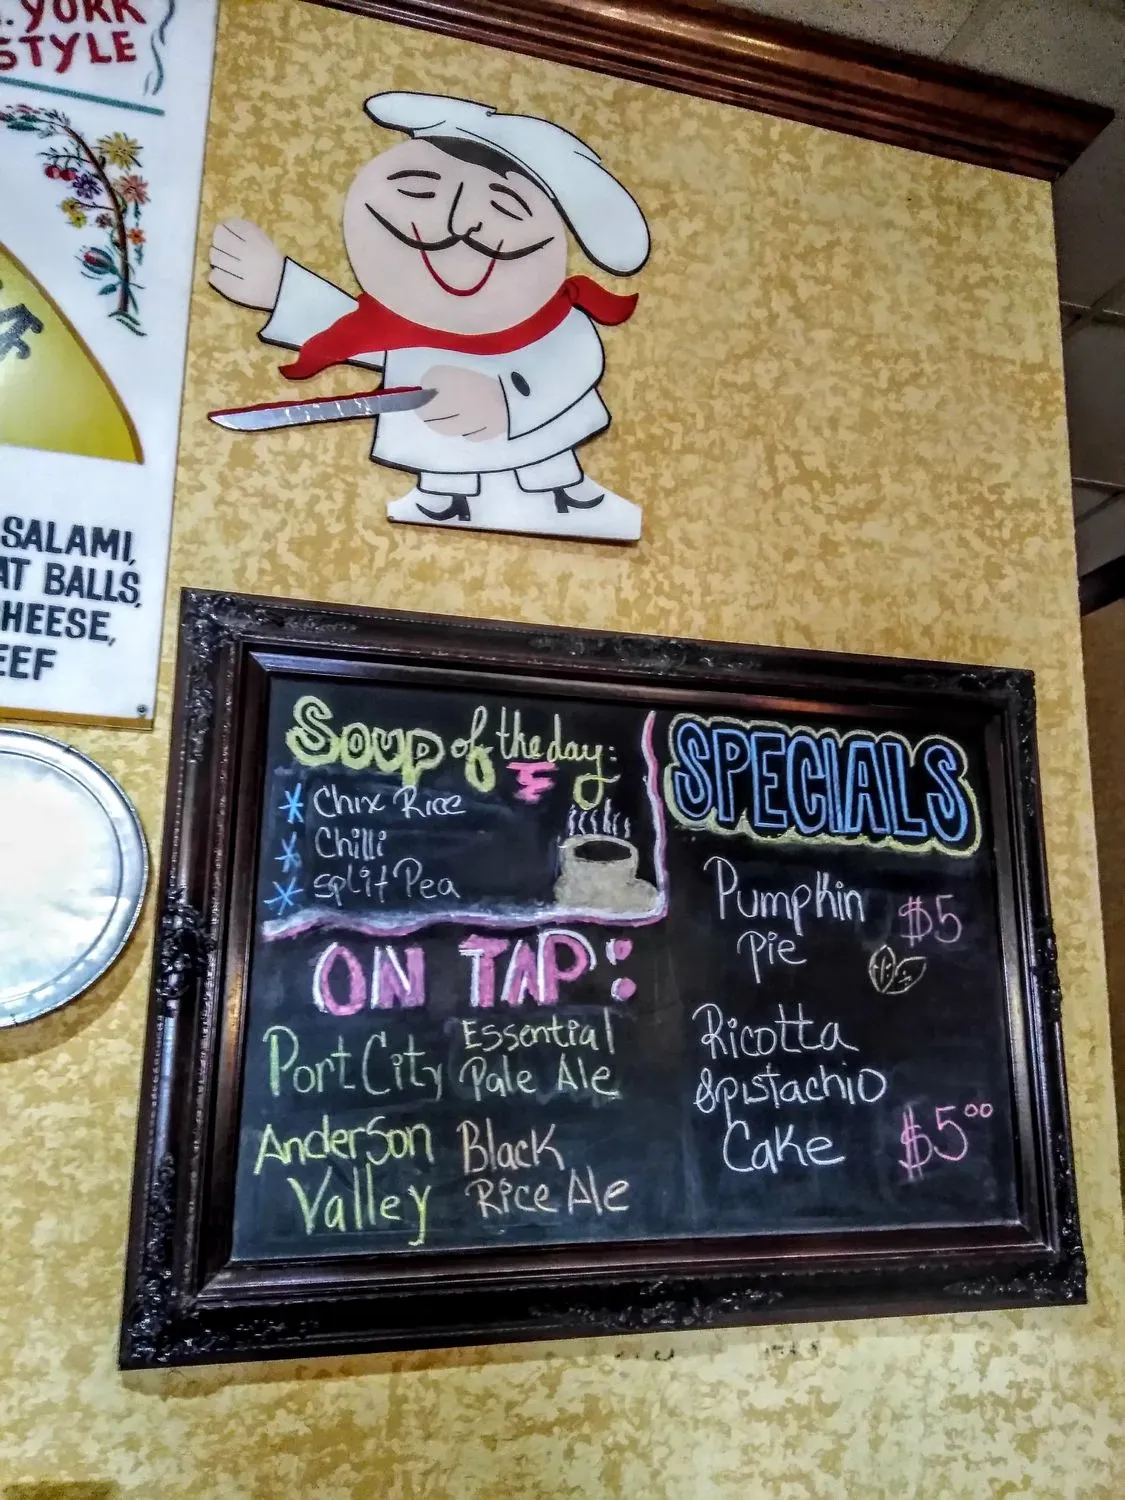 . YORK
STYLE
SALAMI,
AT BALLS,
HEESE,
EEF
Soup of the day:
Chix Rice
Chilli
Split Pea
ON TAP:
Port City Essential Pale Ale
Anderson Valley Black Rice Ale
SPECIALS
Pumpkin
Pie
$5
Ricotta
& pistachio
Cake
$5.00